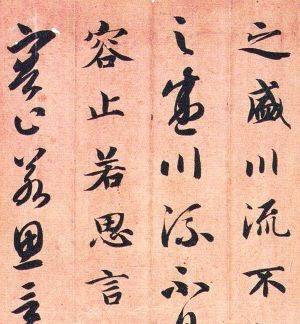 之盛川流不
之盛川流不
容止若思言
容止若思言